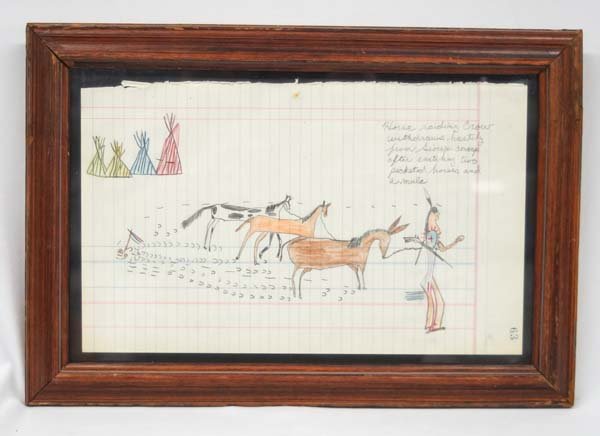 Horse raiding Crow
withdraws hastily
from Sioux camp
after catching two
picketed horses and
a mule
63